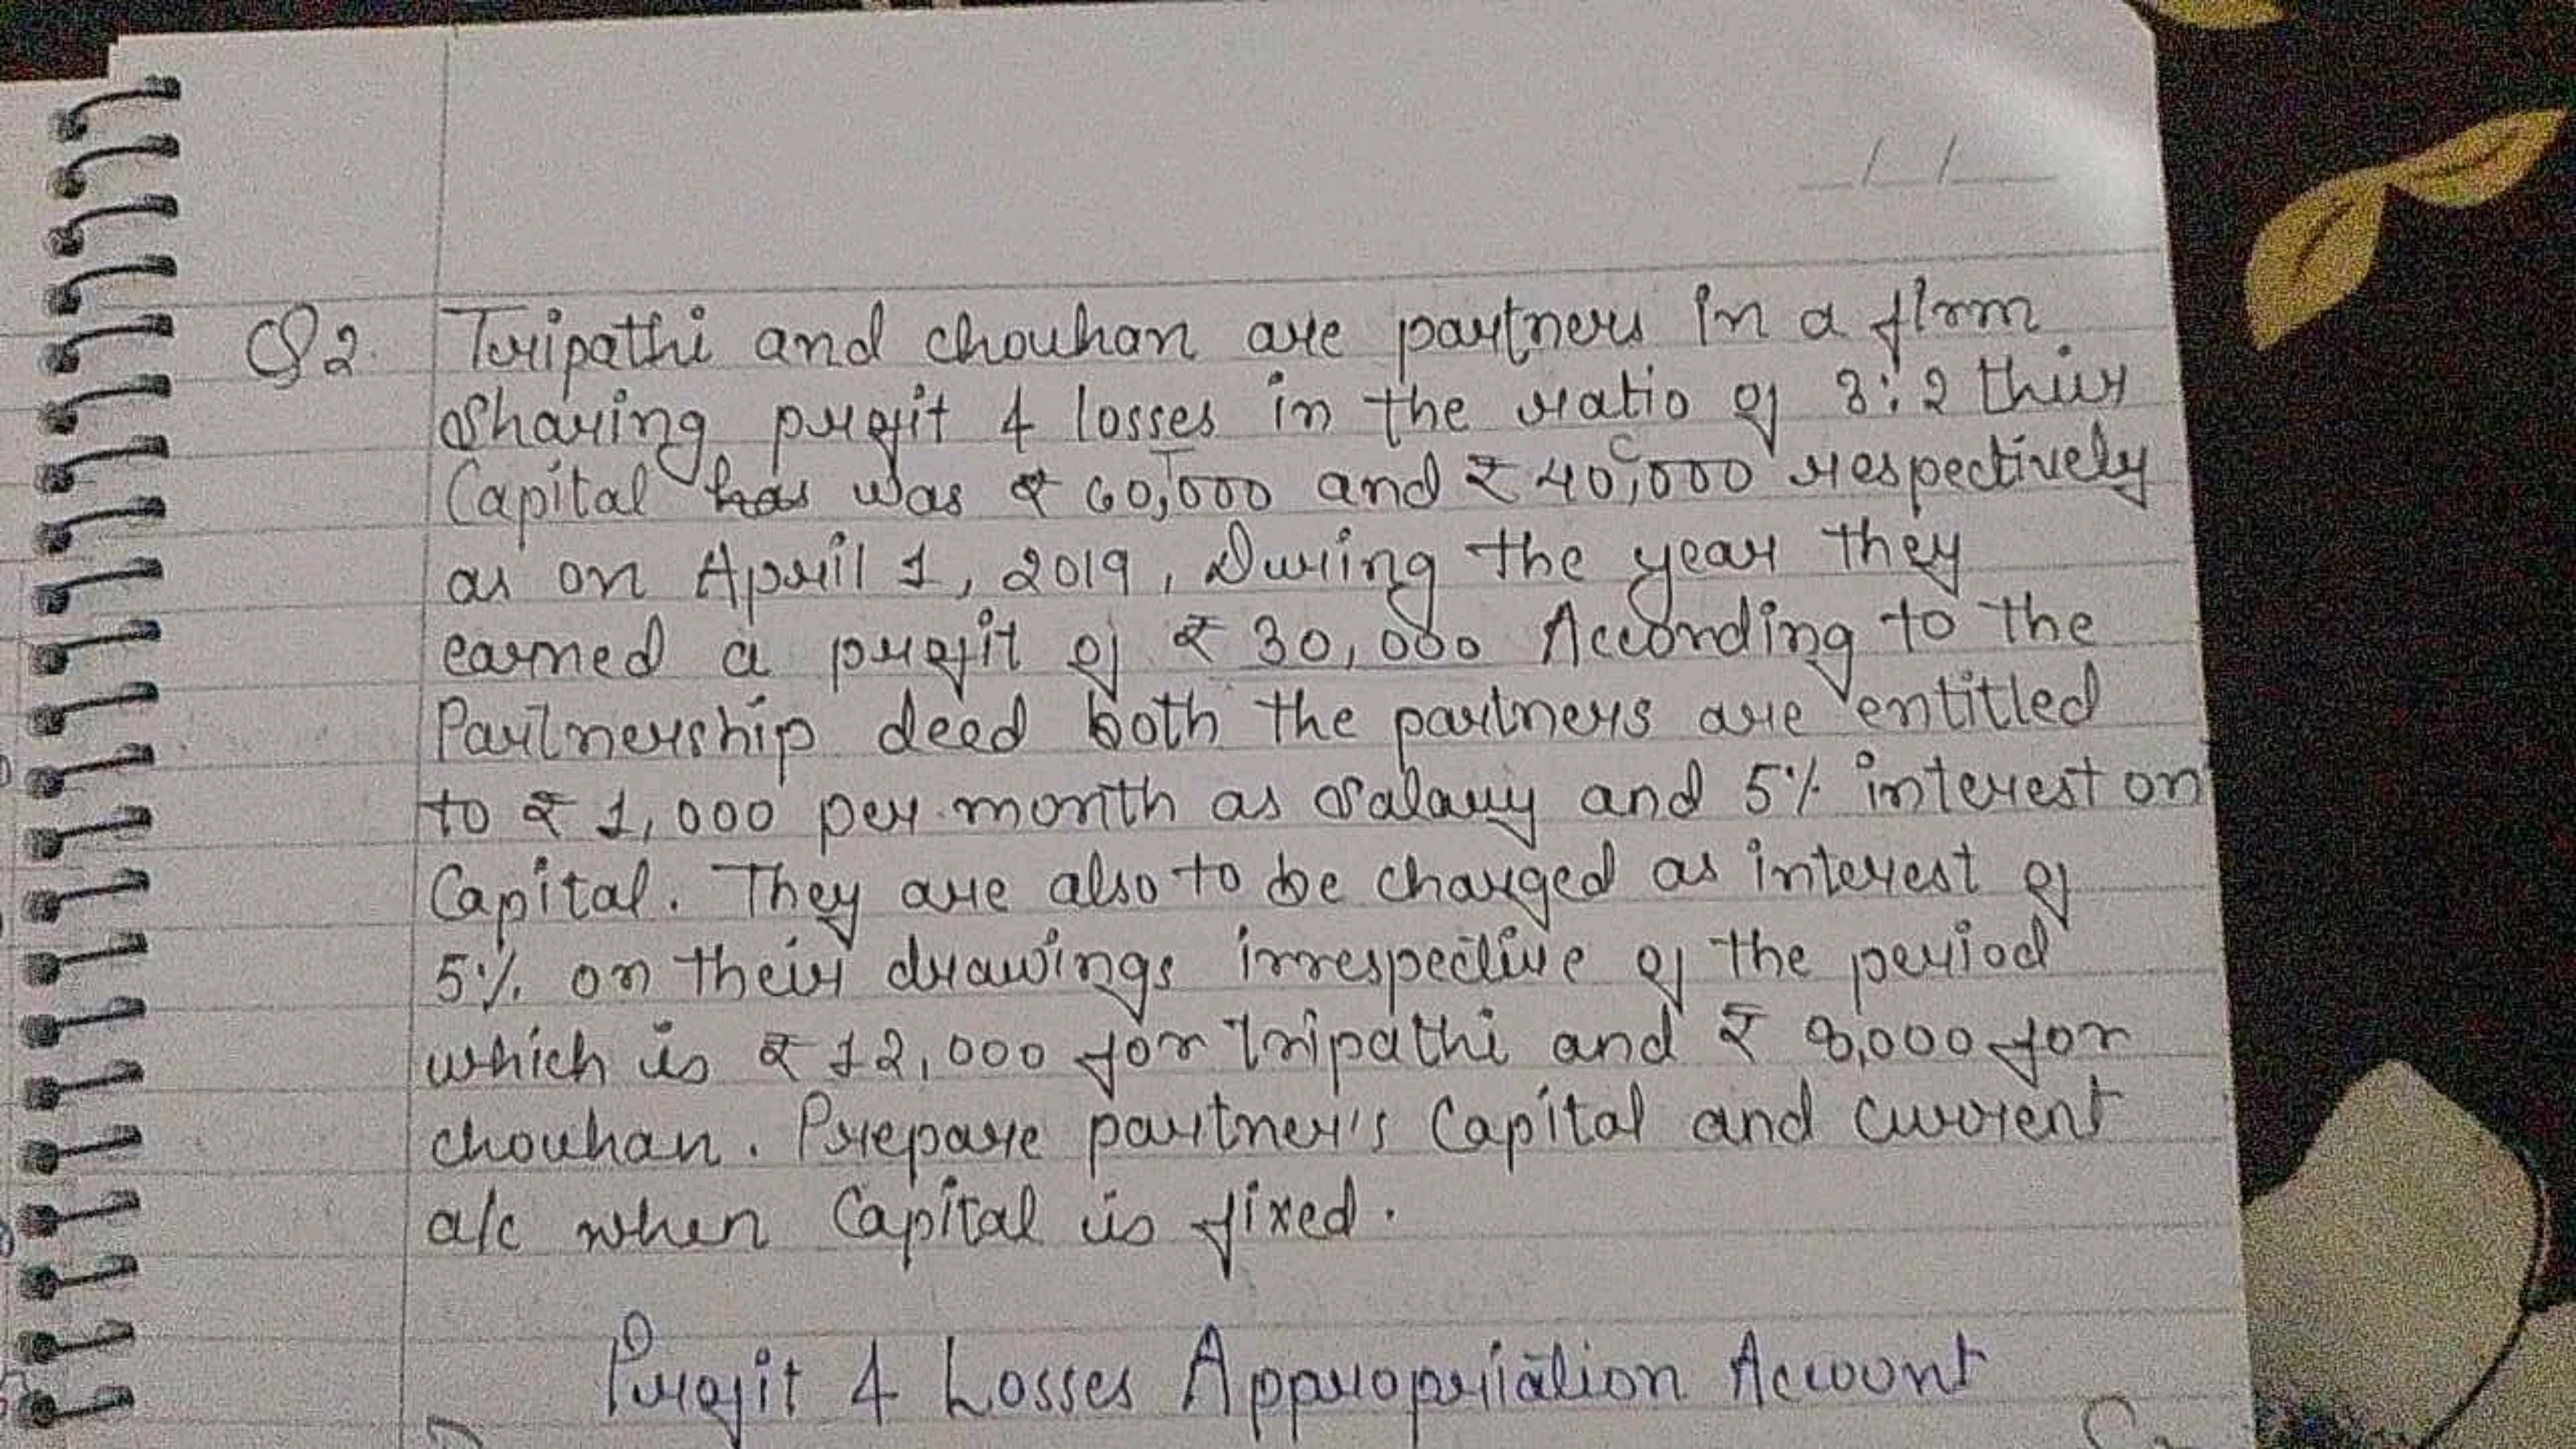 _/_/_
Q2. Tripathi and chouhan are partners in a firm
Sharing profit & losses in the ratio of 3:2 thier
T C
Capital has was ₹ 60,000 and ₹ 40,000 respectively
as on April 1, 2019, During the year they
earned a profit of ₹ 30,000 According to the
Partnership deed both the partners are entitled
to ₹ 1,000 per month as salary and 5% interest on
Capital. They are also to be charged as interest of
5% on their drawings irrespective of the period
which is ₹ 12,000 for tripathi and ₹ 8,000 for
chouhan. Prepare partner's Capital and current
a/c when Capital is fixed.
Profit & Losses Appropriation Account